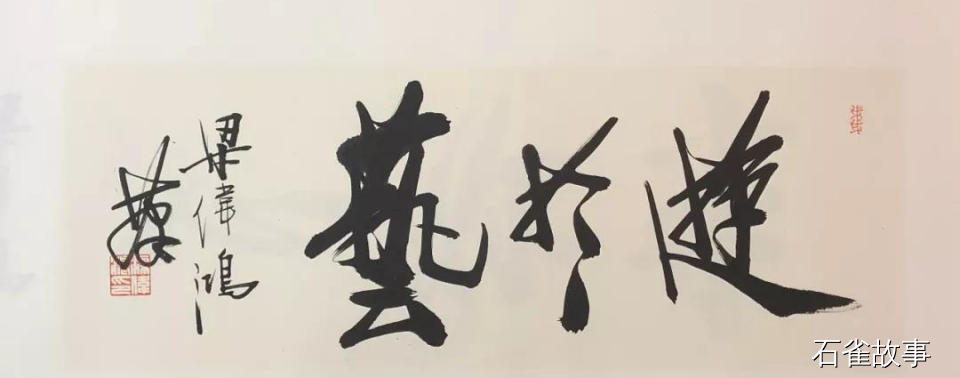 遊於藝
梁偉鴻
石雀故事